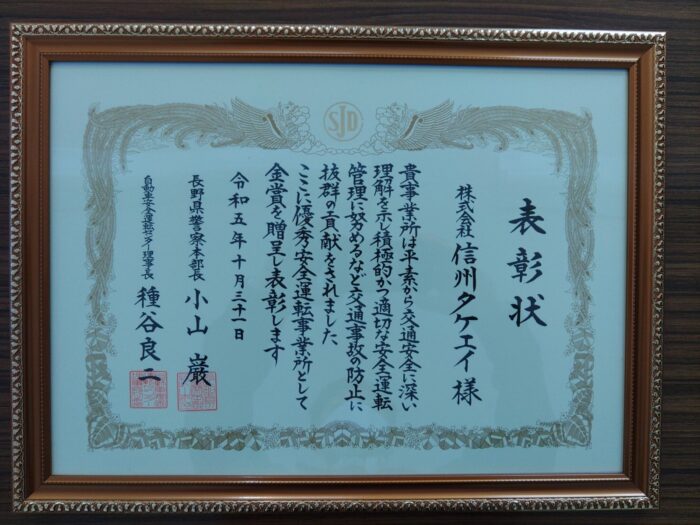 SJD
表彰状
株式会社 信州タケエイ 様
貴事業所は平素から交通安全に深い
理解を示し積極的かつ適切な安全運転
管理に努めるなど交通事故の防止に
抜群の貢献をされました
ここに優秀安全運転事業所として
金賞を贈呈し表彰します
令和五年十月三十一日
長野県警察本部長 小山 巌
自動車安全運転センター理事長 種谷良二